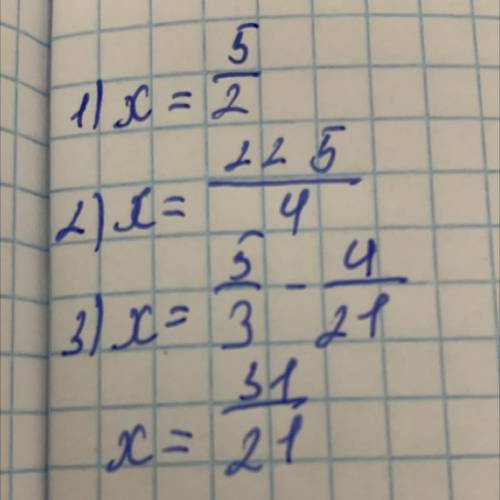 1) x = 5/2
2) x = 225/4
3) x = 5/3 - 4/21
x = 31/21